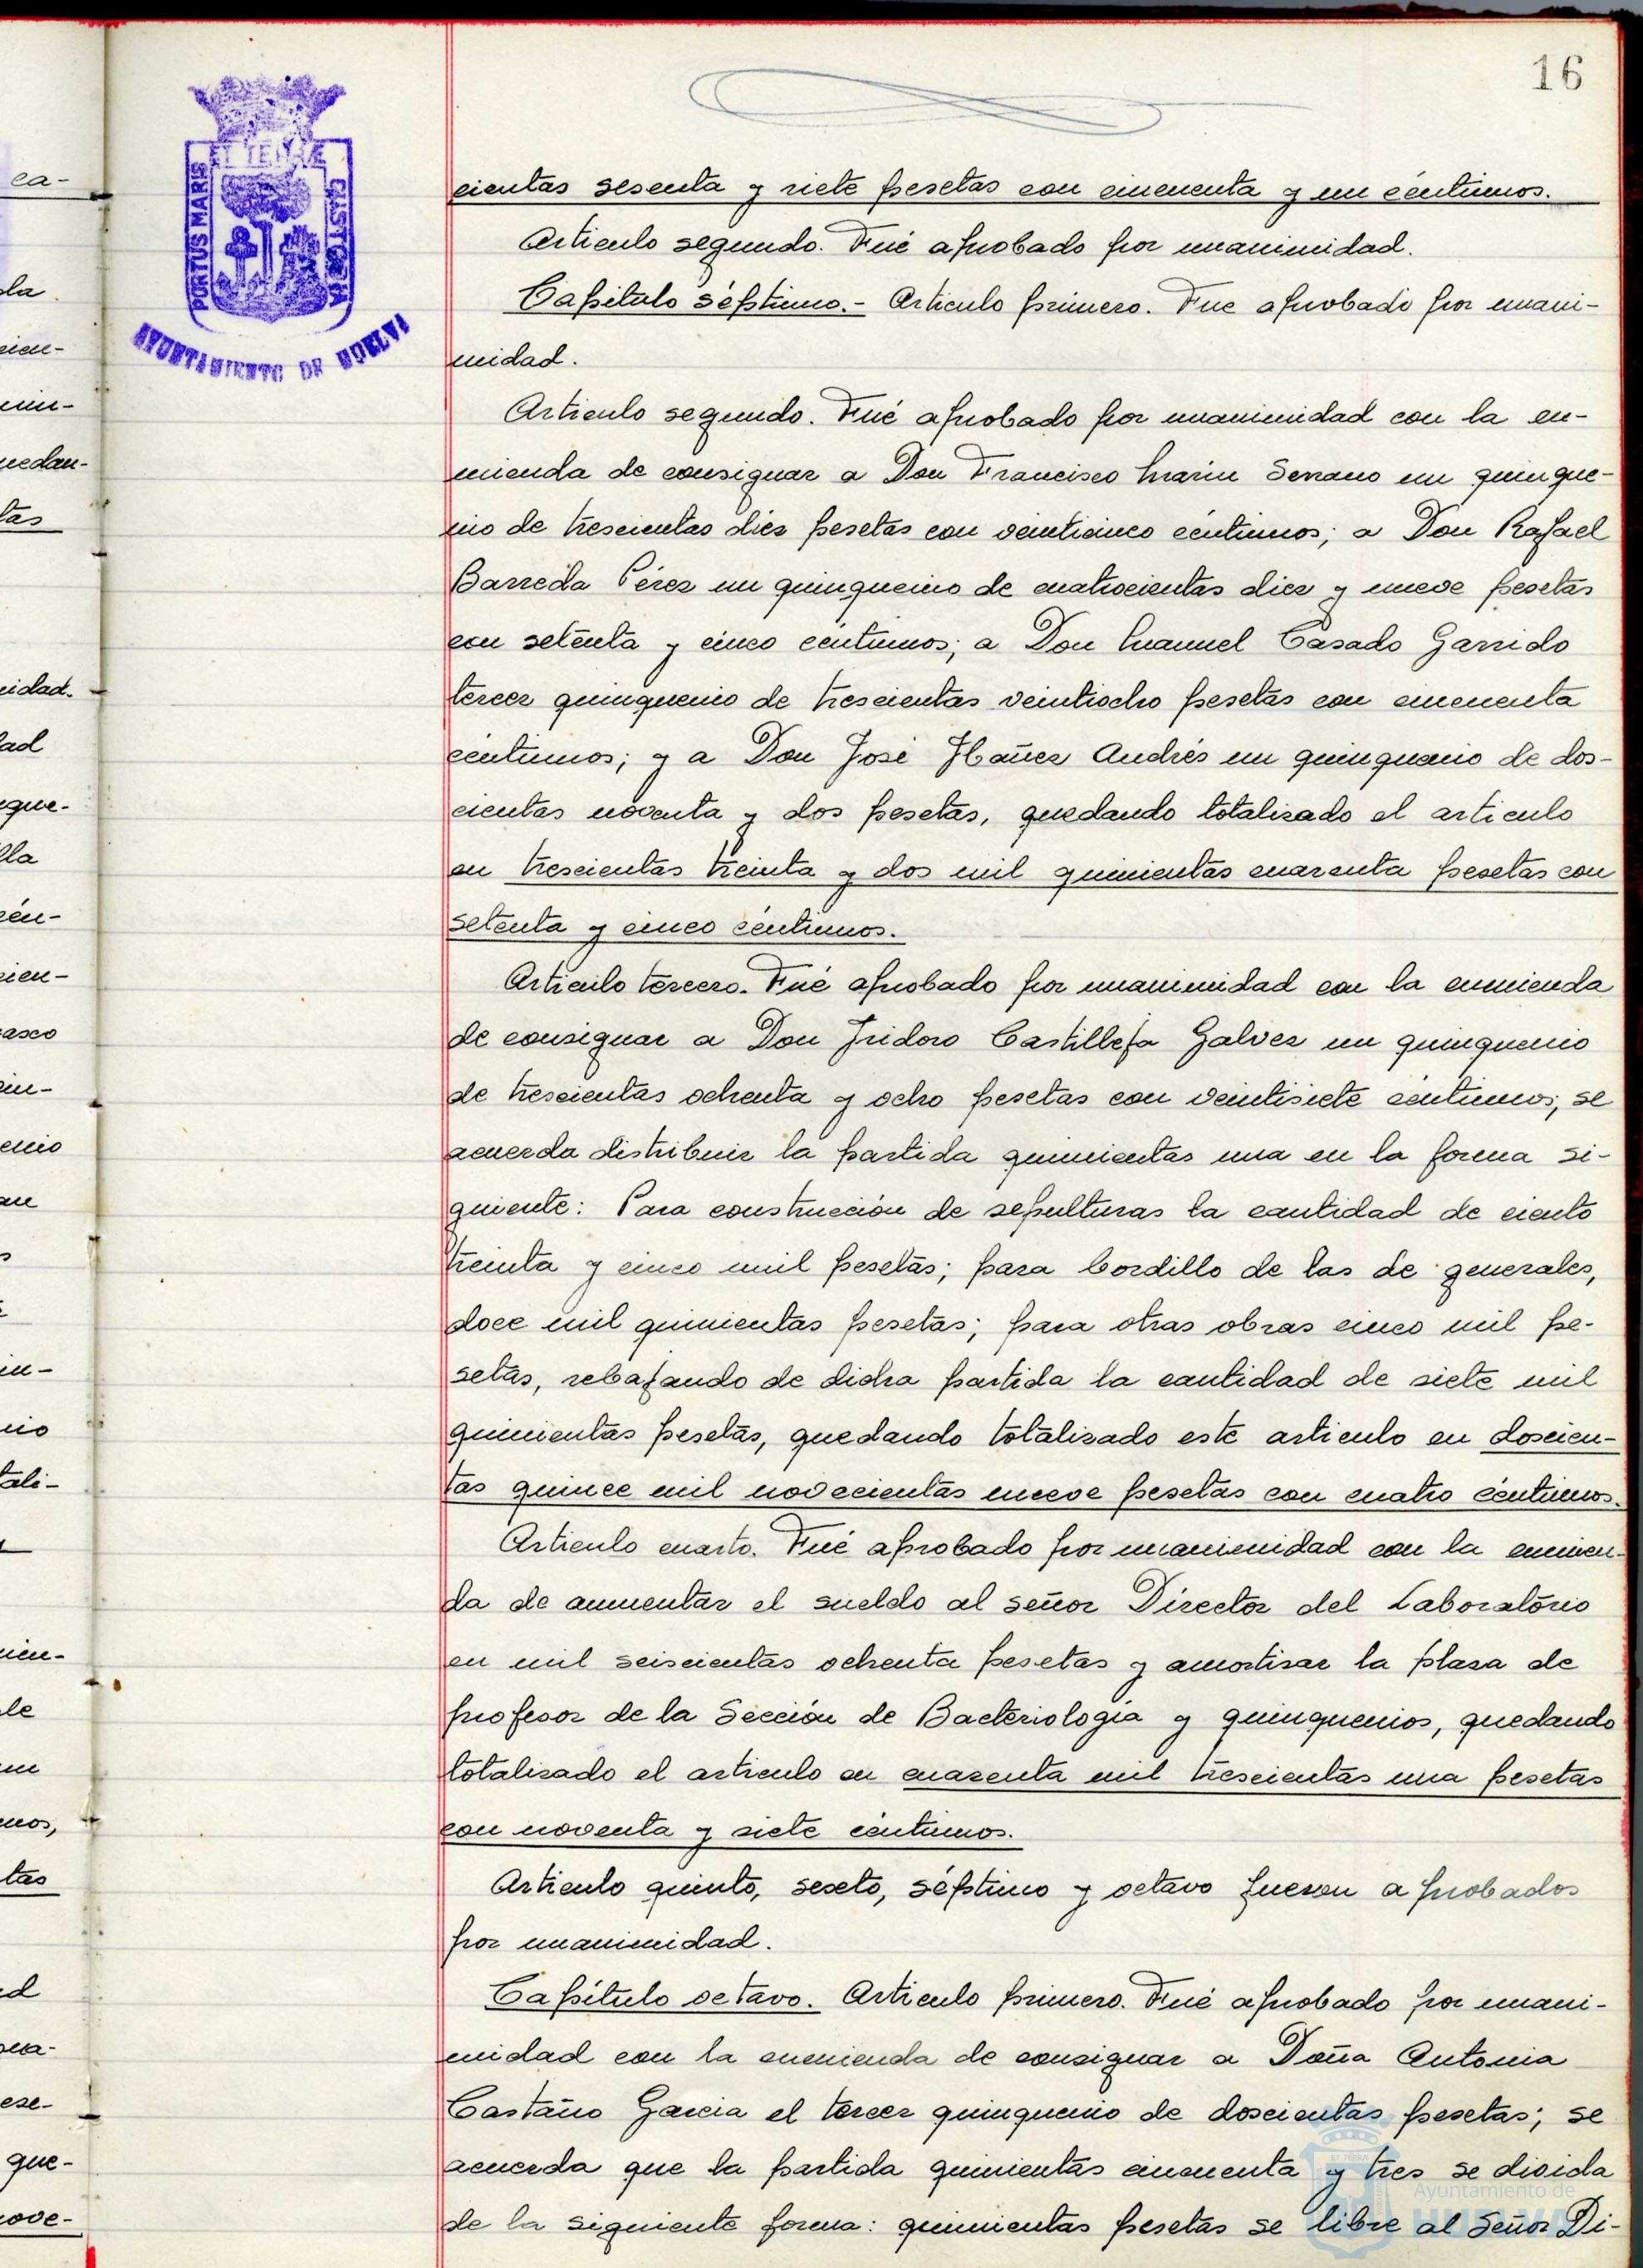 16
ET TERRÆ
PORTUS MARIS
CUSTODIA
AYUNTAMIENTO DE HUELVA
cientas sesenta y siete pesetas con cincuenta y un céntimos.
Articulo segundo. Fué aprobado por unanimidad.
Capitulo séptimo.- Articulo primero. Fue aprobado por unani-
midad.
Articulo segundo. Fué aprobado por unanimidad con la en-
mienda de consignar a Don Francisco Marin Serrano un quinque-
nio de trescientas diez pesetas con veinticinco céntimos; a Don Rafael
Barreda Pérez un quinquenio de cuatrocientas diez y nueve pesetas
con setenta y cinco céntimos; a Don Manuel Casado Garrido
tercer quinquenio de trescientas veintiocho pesetas con cincuenta
céntimos; y a Don José Ibañez Andrés un quinquenio de dos-
cientas noventa y dos pesetas, quedando totalizado el articulo
en trescientas treinta y dos mil quinientas cuarenta pesetas con
setenta y cinco céntimos.
Articulo tercero. Fué aprobado por unanimidad con la enmienda
de consignar a Don Isidoro Castilleja Galvez un quinquenio
de trescientas ochenta y ocho pesetas con veintisiete céntimos; se
acuerda distribuir la partida quinientas una en la forma si-
guiente: Para construcción de sepulturas la cantidad de ciento
treinta y cinco mil pesetas; para bordillo de las de generales,
doce mil quinientas pesetas; para otras obras cinco mil pe-
setas, rebajando de dicha partida la cantidad de siete mil
quinientas pesetas, quedando totalizado este articulo en doscien-
tas quince mil novecientas nueve pesetas con cuatro céntimos.
Articulo cuarto. Fué aprobado por unanimidad con la enmien-
da de aumentar el sueldo al señor Director del Laboratorio
en mil seiscientas ochenta pesetas y amortizar la plaza de
profesor de la Sección de Bacteriologia y quinquenios, quedando
totalizado el articulo en cuarenta mil trescientas una pesetas
con noventa y siete céntimos.
Articulo quinto, sexto, séptimo y octavo fueron aprobados
por unanimidad.
Capítulo octavo. Articulo primero. Fué aprobado por unani-
midad con la enmienda de consignar a Doña Antonia
Castaño Garcia el tercer quinquenio de doscientas pesetas; se
acuerda que la partida quinientas cincuenta y tres se divida
de la siguiente forma: quinientas pesetas se libre al Señor Di-
Ayuntamiento de
HUELVA